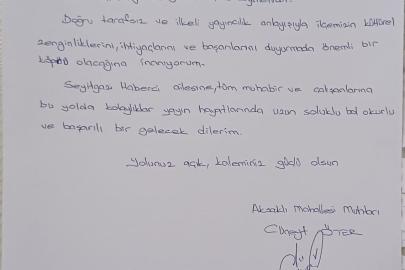 Doğru tarafsız ve ilkeli yayıncılık anlayışıyla ilçemizin kültürel
zenginliklerini, ihtiyaçlarını ve başarılarını duyurmada önemli bir
köprü olacağına inanıyorum.
Seyitgazi Haberci ailesine, tüm muhabir ve çalışanlarına
bu yolda kolaylıklar yayın hayatlarında uzun soluklu bol okurlu
ve başarılı bir gelecek dilerim.
Yolunuz açık, kaleminiz güçlü olsun
Aksaklı Mahallesi Muhtarı
Cüneyt ÖTER